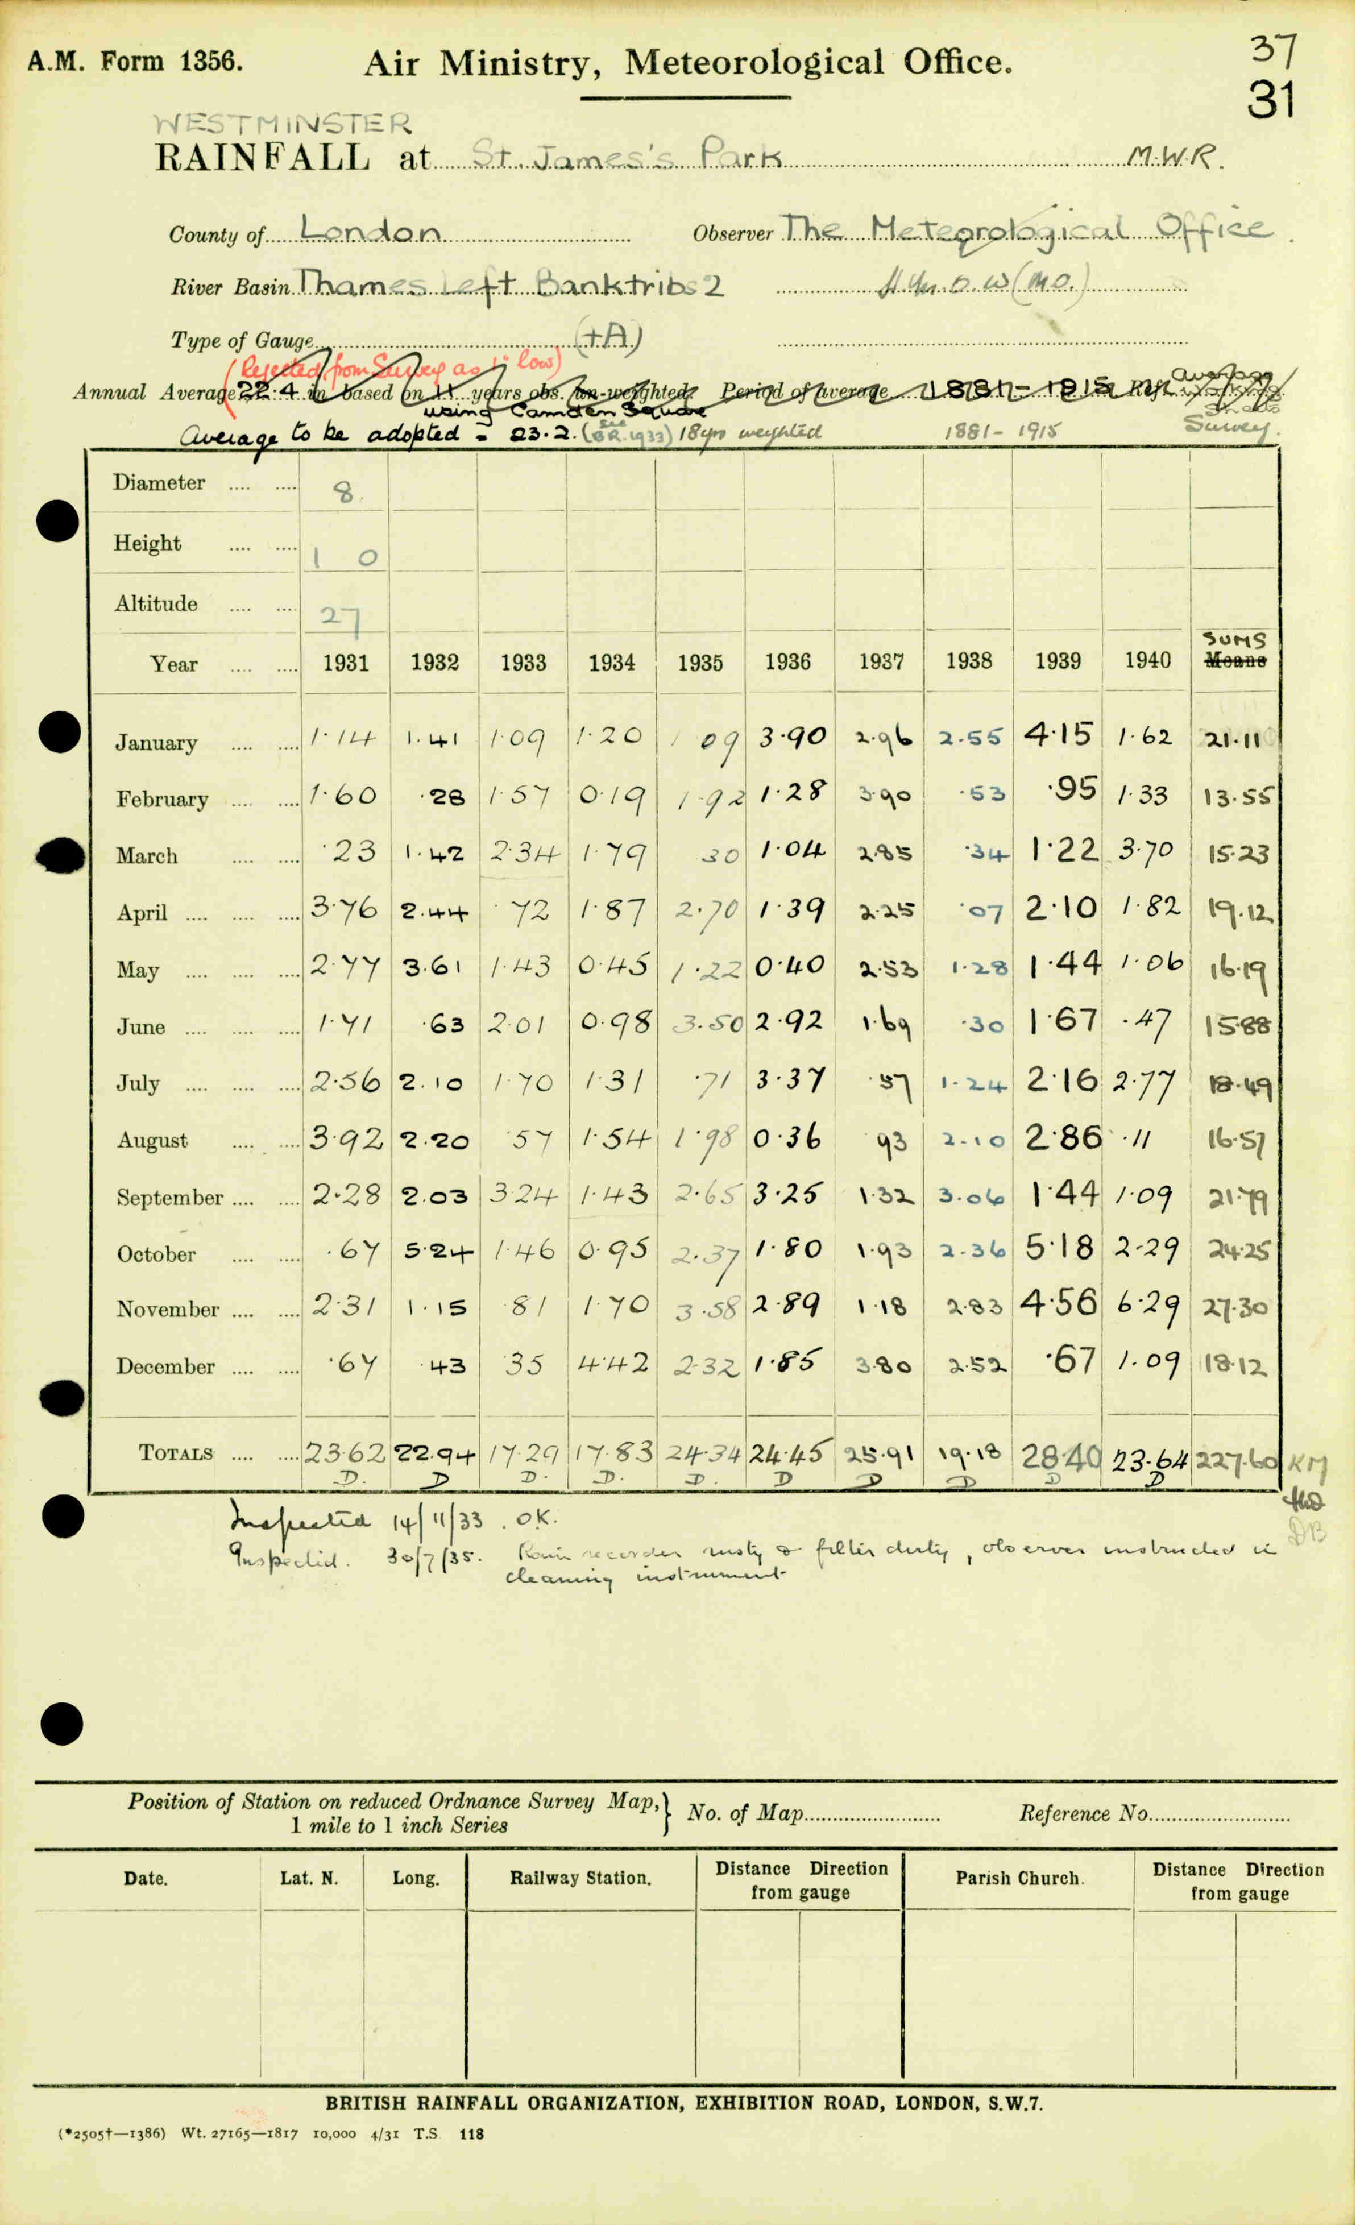 A.M. Form 1356. Air Ministry, Meteorological Office. 37
31
WESTMINSTER
RAINFALL at St. James's Park M.W.R.
County of London Observer The Meteorological Office
River Basin Thames Left Bank tribs 2 (M.O.)
Type of Gauge (+A)
(Rejected from Survey as 1" low)
Annual Average 22.4 in based on 11 years obs. un-weighted. Period of average 1881-1915 Ref. Average
using Camden Square
Average to be adopted = 23.2. (see B.R. 1933) 18 yrs weighted 1881-1915 Survey.
Diameter .... .... 8
Height .... .... 1 0
Altitude .... .... 27
SUMS
Year .... .... 1931 1932 1933 1934 1935 1936 1937 1938 1939 1940 Means
January .... .... 1.14 1.41 1.09 1.20 1.09 3.90 2.96 2.55 4.15 1.62 21.11
February .... .... 1.60 .28 1.57 0.19 1.92 1.28 3.90 .53 .95 1.33 13.55
March .... .... .23 1.42 2.34 1.79 30 1.04 2.85 .34 1.22 3.70 15.23
April .... .... .... 3.76 2.44 .72 1.87 2.70 1.39 2.25 .07 2.10 1.82 19.12
May .... .... .... 2.77 3.61 1.43 0.45 1.22 0.40 2.53 1.28 1.44 1.06 16.19
June .... .... .... 1.71 .63 2.01 0.98 3.50 2.92 1.69 .30 1.67 .47 15.88
July .... .... .... 2.56 2.10 1.70 1.31 .71 3.37 .57 1.24 2.16 2.77 18.49
August .... .... 3.92 2.20 .57 1.54 1.98 0.36 .93 2.10 2.86 .11 16.57
September .... .... 2.28 2.03 3.24 1.43 2.65 3.25 1.32 3.06 1.44 1.09 21.79
October .... .... .67 5.24 1.46 0.95 2.37 1.80 1.93 2.36 5.18 2.29 24.25
November .... .... 2.31 1.15 .81 1.70 3.58 2.89 1.18 2.83 4.56 6.29 27.30
December .... .... .67 .43 .35 4.42 2.32 1.85 3.80 2.52 .67 1.09 18.12
TOTALS .... .... 23.62 22.94 17.29 17.83 24.34 24.45 25.91 19.18 28.40 23.64 227.60 KM
D. D D. D. D. D D D D D
DB
Inspected 14/11/33. O.K.
Inspected. 30/7/35. Rain recorder rusty & filter dirty, observer instructed in
cleaning instrument
Position of Station on reduced Ordnance Survey Map, } No. of Map Reference No.
1 mile to 1 inch Series
Date. Lat. N. Long. Railway Station. Distance Direction from gauge Parish Church. Distance Direction from gauge
BRITISH RAINFALL ORGANIZATION, EXHIBITION ROAD, LONDON, S.W.7.
(*2505†—1386) Wt. 27165—1817 10,000 4/31 T.S. 118